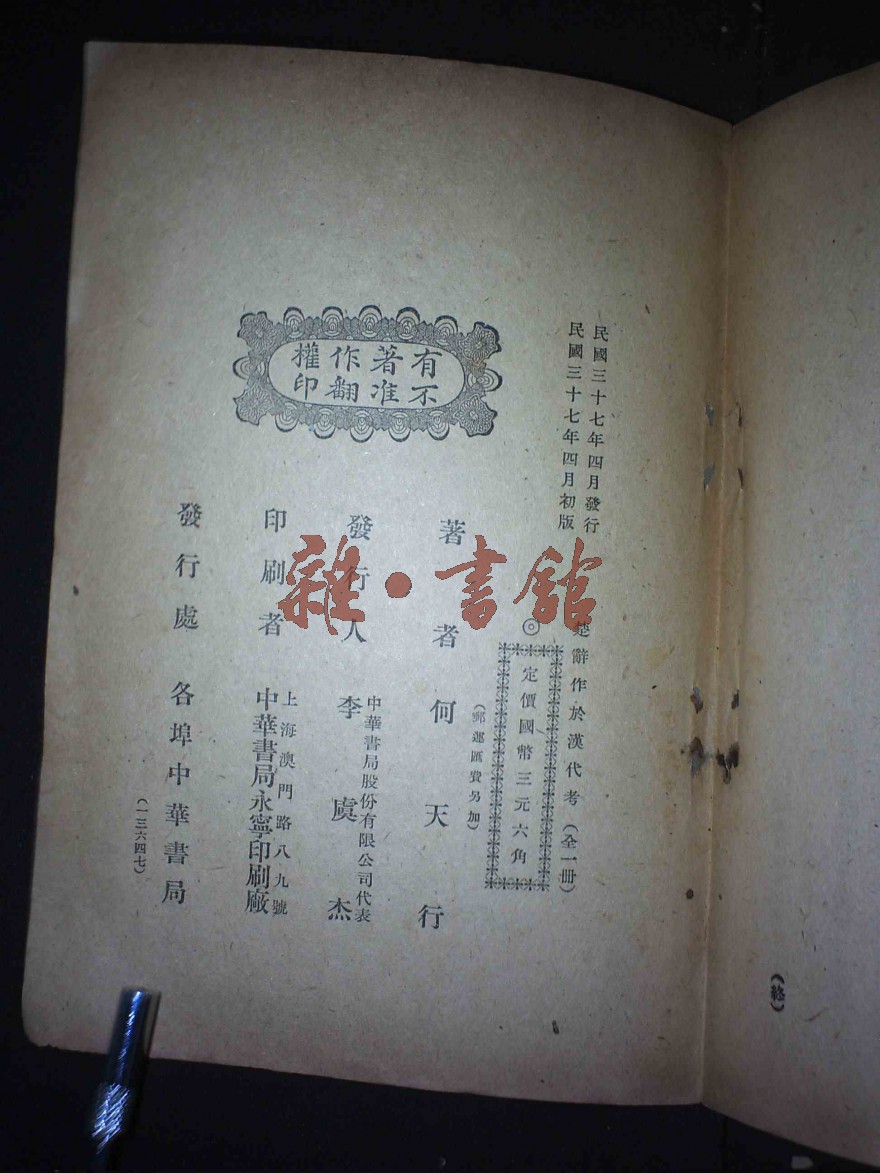 民國三十七年四月發行
民國三十七年四月初版
楚辭作於漢代考（全一冊）
◎定價國幣三元六角
（郵運匯費另加）
有著作權
不准翻印
著者 何天行
發行人 李虞杰
中華書局股份有限公司代表
印刷者 中華書局永寧印刷廠
上海澳門路八九號
發行處 各埠中華書局
（一三六四七）
（終）
雜·書館